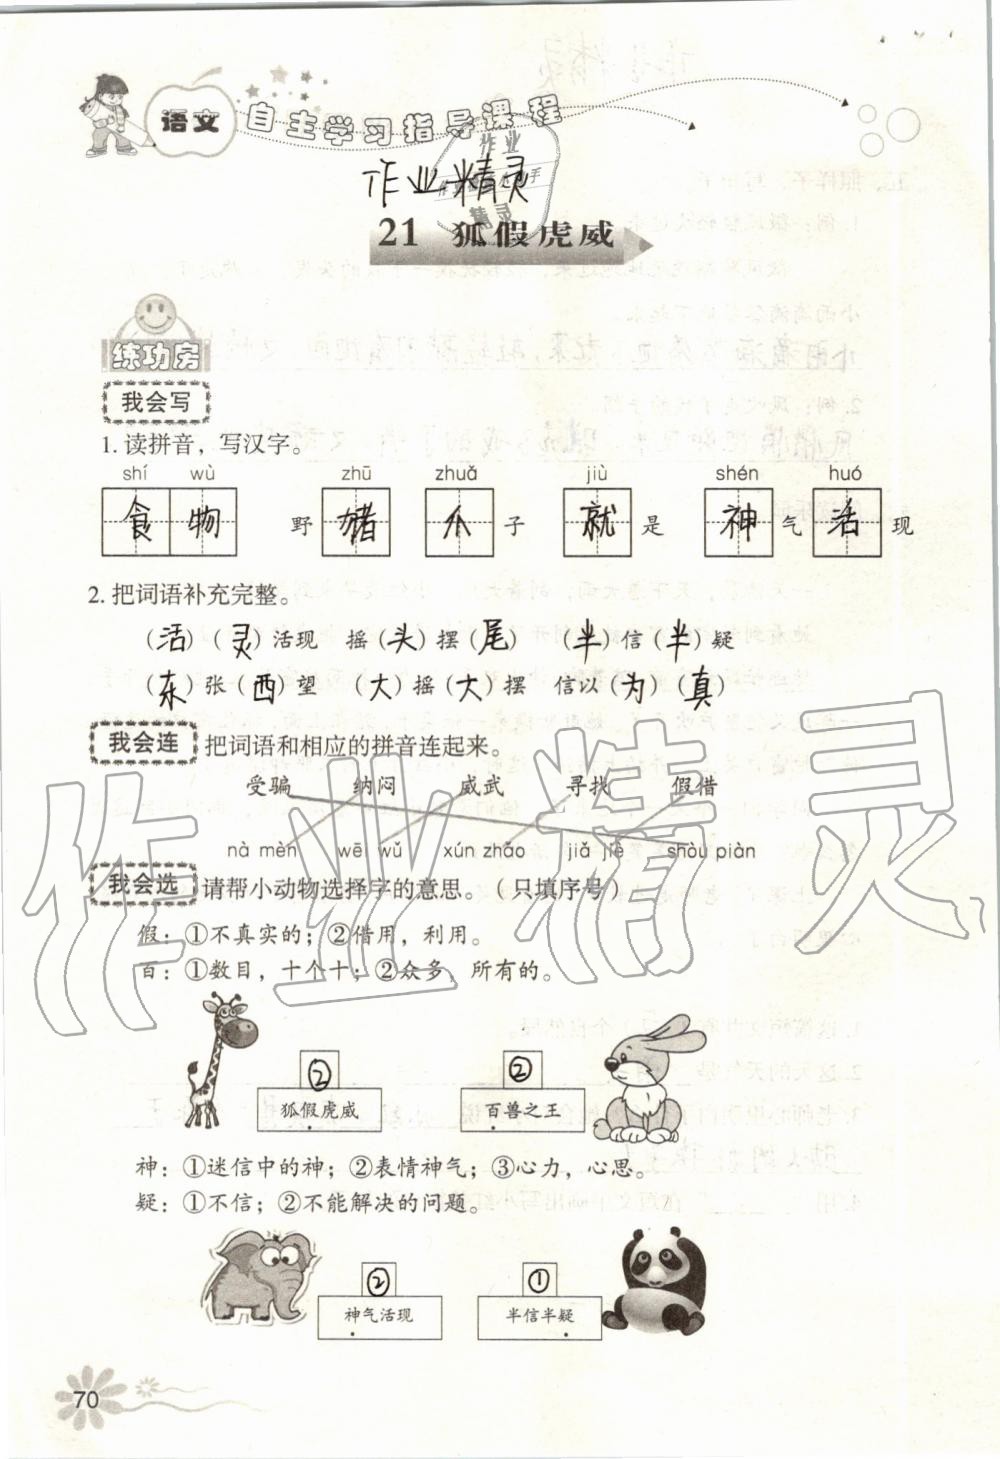 语文 自主学习指导课程
作业精灵
21 狐假虎威
练功房
我会写
1. 读拼音，写汉字。
shí wù zhū zhuǎ jiù shén huó
食 物 野 猪 爪 子 就 是 神 气 活 现
2. 把词语补充完整。
（活）（灵）活现 摇（头）摆（尾） （半）信（半）疑
（东）张（西）望 （大）摇（大）摆 信以（为）（真）
我会连 把词语和相应的拼音连起来。
受骗 纳闷 威武 寻找 假借
nà mèn wēi wǔ xún zhǎo jiǎ jiè shòu piàn
我会选 请帮小动物选择字的意思。（只填序号）
假：①不真实的；②借用，利用。
百：①数目，十个十；②众多，所有的。
② ②
狐假虎威 百兽之王
神：①迷信中的神；②表情神气；③心力，心思。
疑：①不信；②不能解决的问题。
② ①
神气活现 半信半疑
70
作业精灵